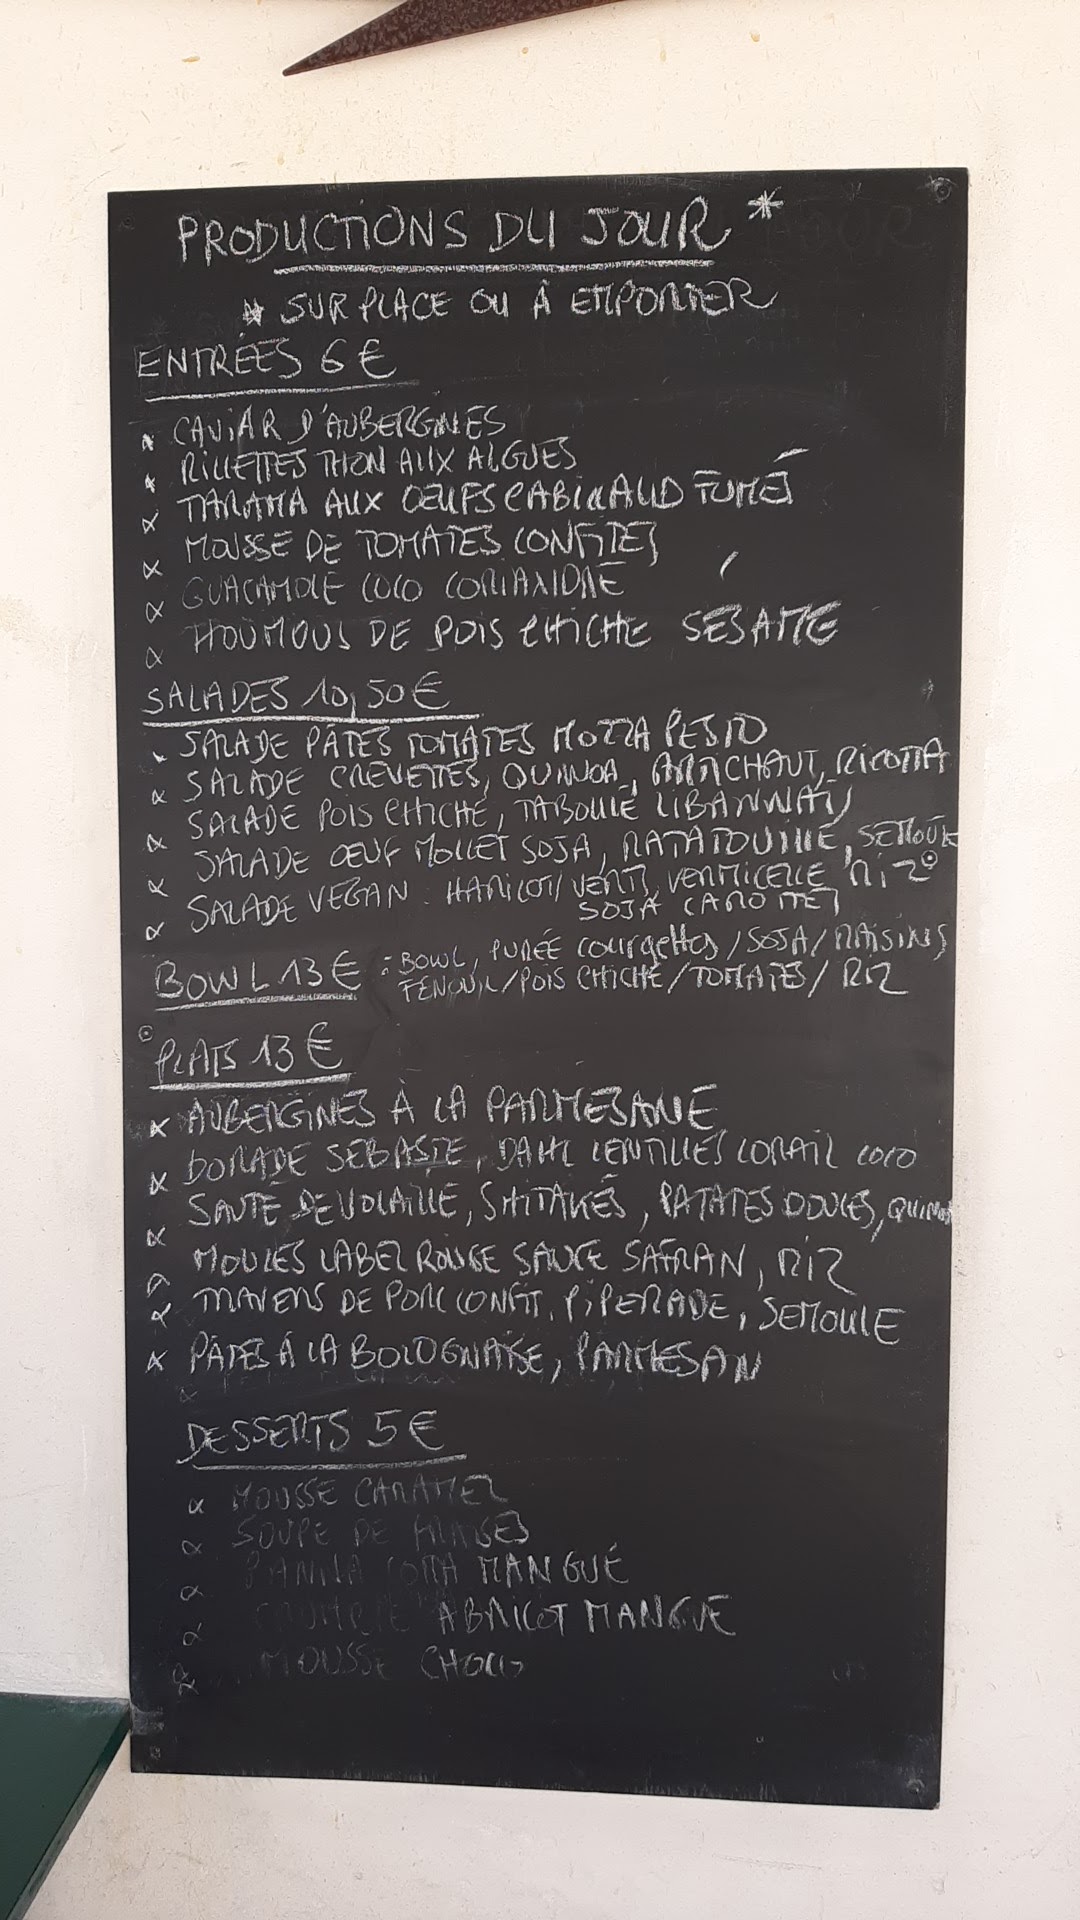 PRODUCTIONS DU JOUR *
* SUR PLACE OU À EMPORTER
ENTRÉES 6 €
CAVIAR D'AUBERGINES
RILLETTES THON AUX ALGUES
TARAMA AUX OEUFS CABILLAUD FUMÉ
MOUSSE DE TOMATES CONFITES
GUACAMOLE COCO CORIANDRE
HOUMOUS DE POIS CHICHE SÉSAME
SALADES 10,50 €
SALADE PÂTES TOMATES MOZZA PESTO
SALADE CREVETTES, QUINOA, ARTICHAUT, RICOTTA
SALADE POIS CHICHE, TABOULÉ LIBANNAIS
SALADE OEUF MOLLET SOJA, RATATOUILLE, SEMOULE
SALADE VEGAN : HARICOTS VERTS, VERMICELLE RIZ
SOJA CAROTTES
BOWL 13 € : BOWL, PURÉE COURGETTES / SOJA / RAISINS
FENOUIL / POIS CHICHE / TOMATES / RIZ
PLATS 13 €
AUBERGINES À LA PARMESANE
DORADE SEBASTE, DAHL LENTILLES CORAIL COCO
SAUTÉ DE VOLAILLE, SHITAKÉS, PATATES DOUCES, QUINOA
MOULES LABEL ROUGE SAUCE SAFRAN, RIZ
TRAVERS DE PORC CONFIT, PIPERADE, SEMOULE
PÂTES À LA BOLOGNAISE, PARMESAN
DESSERTS 5 €
MOUSSE CARAMEL
SOUPE DE FRAISES
PANNA COTTA MANGUE
ABRICOT MANGUE
MOUSSE CHOCO